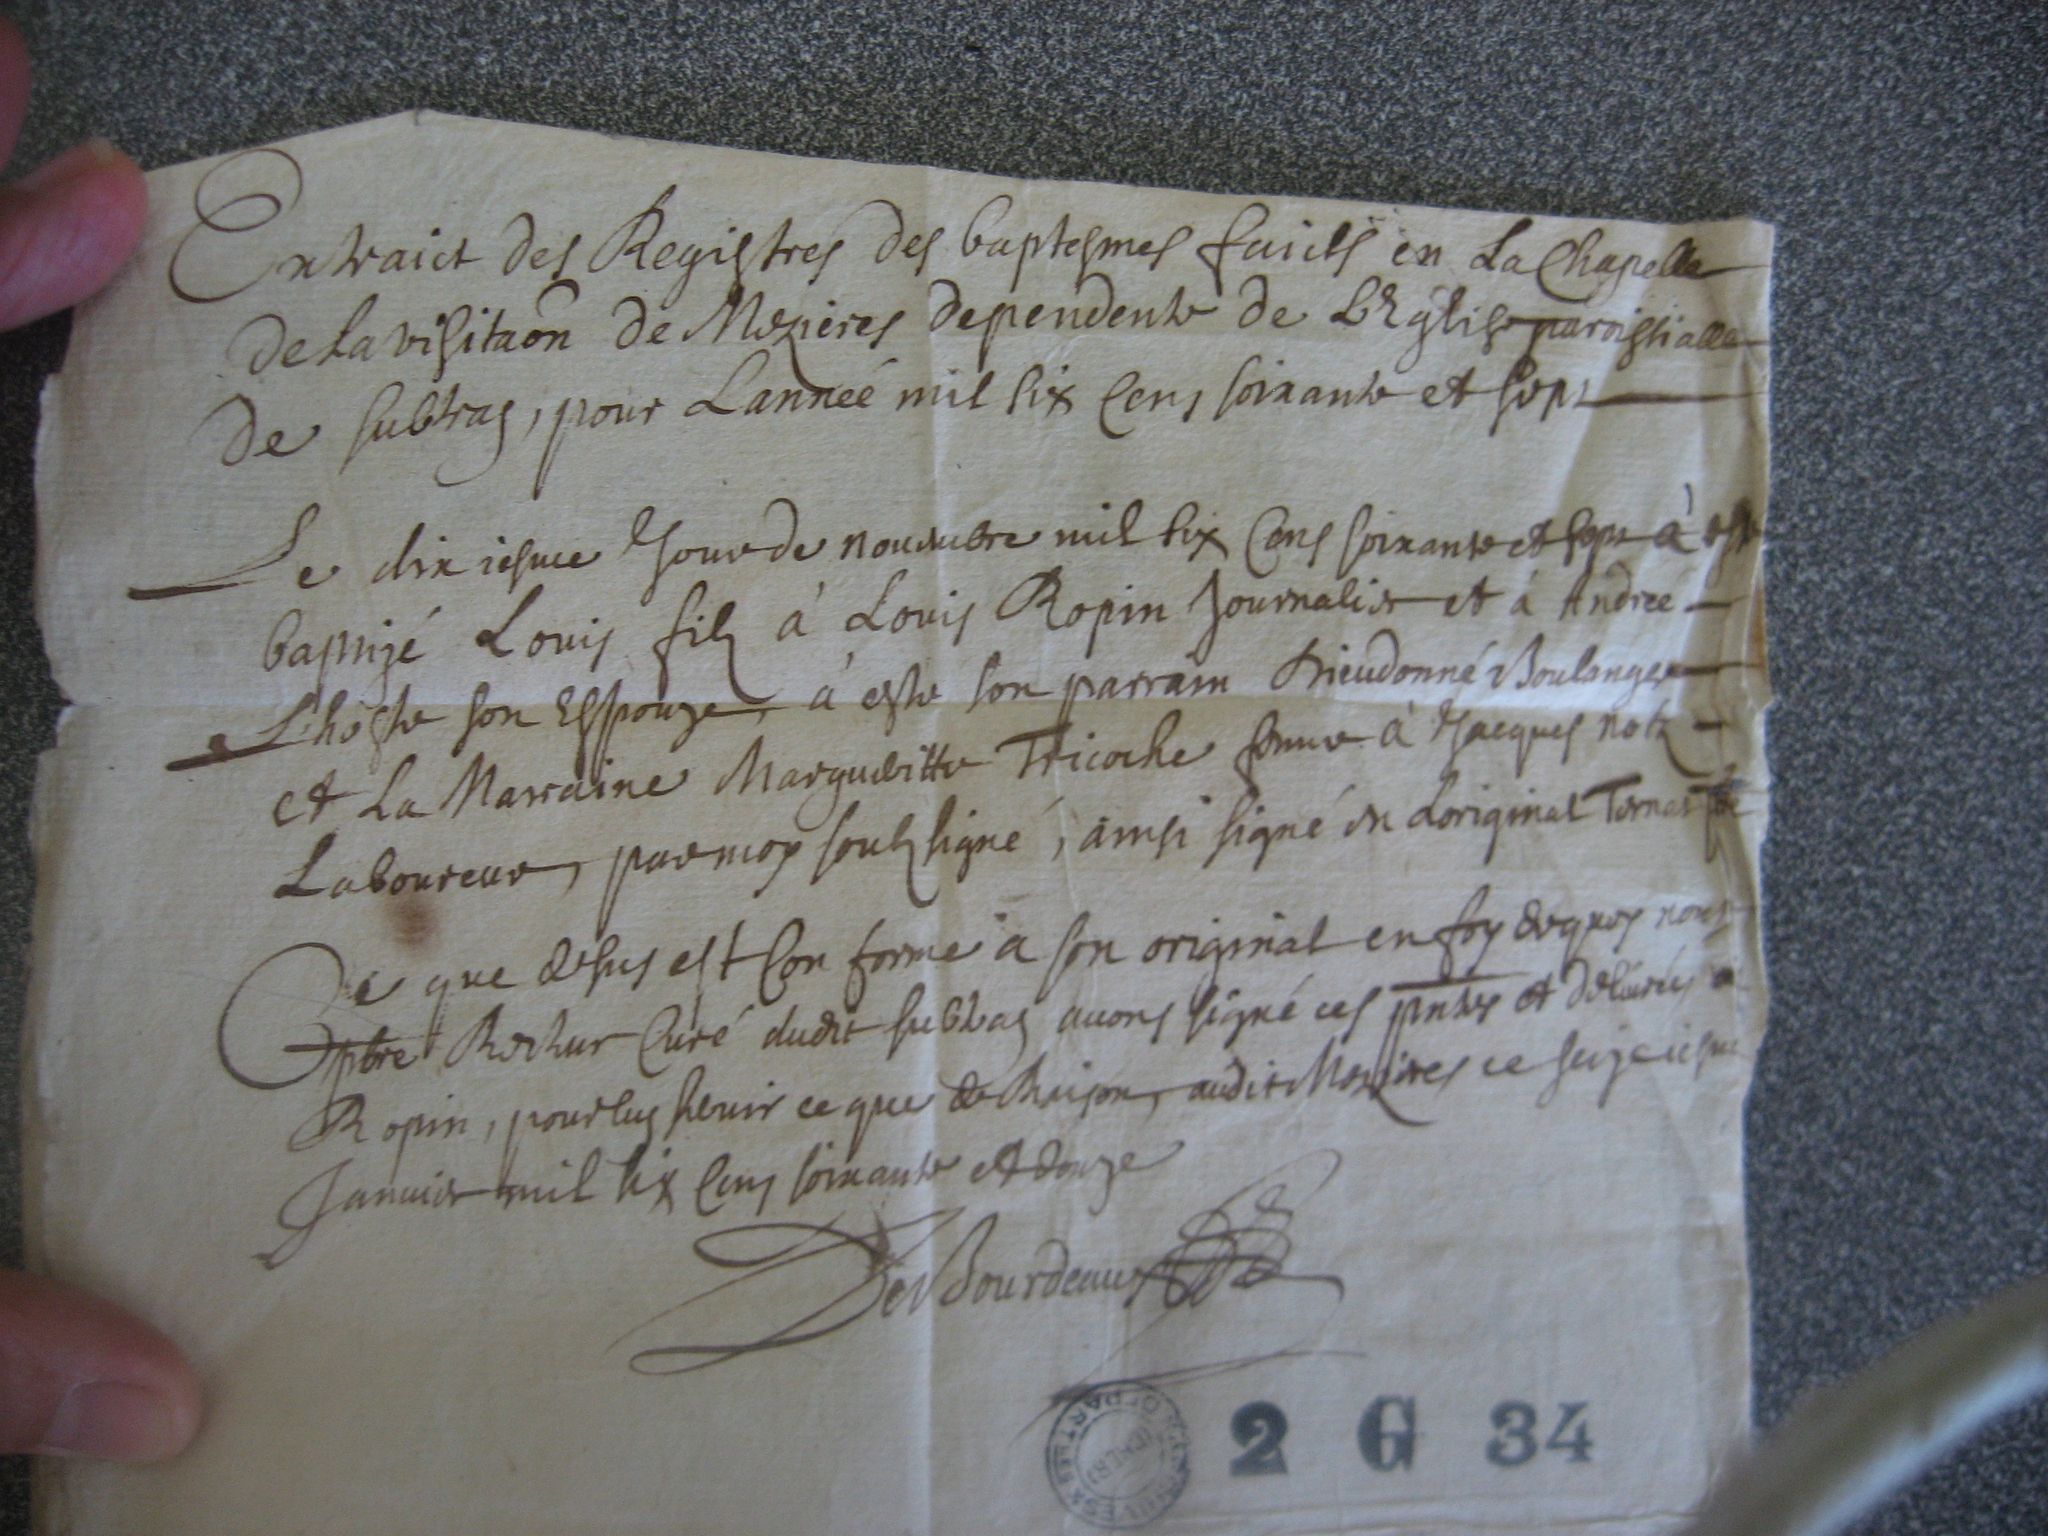 Extraict des Registres des baptesmes faicts en La Chapelle
de la visitaõn de Mezieres dependente de L'Eglise paroissialle
de subtray, pour L'année mil six cens soixante et sept
Le dixiesme Jour de nouembre mil six cens soixante et sept à esté
baptizé Louis filz à Louis Ropin Journalier et à Andrée
Lhoste son Espouze, à este son parrain Dieudonné Boulanger
et La Marraine Margueritte Tricoche femme à Jacques
Laboureur, par moy soubzsigné, ainsi signé en Loriginal
Ce que desus est Conforme à son original en foy de quoy nous
ptbre Recteur Curé dudit subtray auons signé ces pntes et deliurés à
Ropin, pour luy seruir ce que de Raison, audit Mezieres ce seiziesme
Januier mil six cens soixante et douze
DesBourdeaux
2 G 34